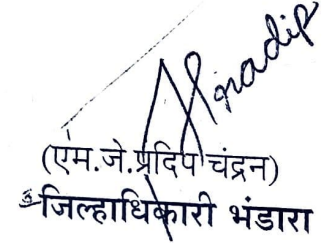 Pradip
(एम.जे.प्रदिप चंद्रन)
जिल्हाधिकारी भंडारा